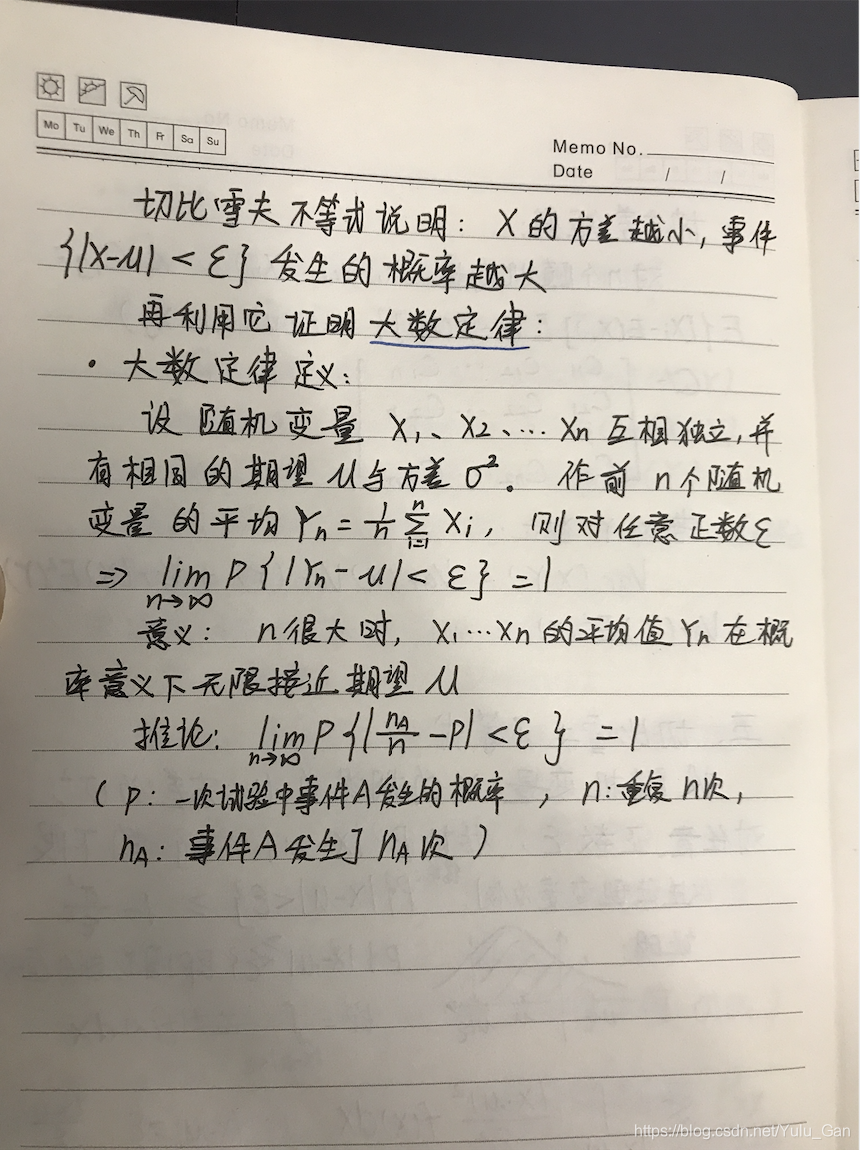 Mo Tu We Th Fr Sa Su
Memo No.
Date / /
切比雪夫不等式说明: X的方差越小,事件
{|X-μ| < ε} 发生的概率越大
再利用它证明大数定律:
· 大数定律定义:
设随机变量 X₁、X₂、…Xn 互相独立,并
有相同的期望μ与方差σ²。作前n个随机
变量的平均 Yn = 1/n ∑_{i=1}^{n} Xi, 则对任意正数ε
=> lim_{n→∞} P{|Yn-μ| < ε} = 1
意义: n很大时, X₁…Xn的平均值Yn在概
率意义下无限接近期望μ
推论: lim_{n→∞} P{|nA/n - P| < ε} = 1
(P: 一次试验中事件A发生的概率, n:重复n次,
nA: 事件A发生了nA次)
https://blog.csdn.net/Yulu_Gan